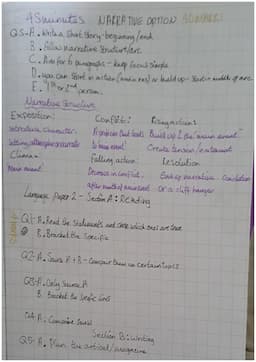 45 minutes NARRATIVE OPTION
Q5-A. Write a short story - beginning/end
B. follow narrative structure/arc.
C. Aim for 6 paragraphs - keep focus simple
D. you can start in action (media res) or build up - start in middle of arc
E. 1st or 3rd person.
Narrative Structure
Exposition: Conflict: Rising action:
Introduce character. A problem that leads Build up to the main event
Setting, atmosphere to main event. Create tension/excitement
Climax: Falling action: Resolution
Main event. Decrease in conflict. End of narrative Conclusion
after main event or a cliff hanger
Language Paper 2 - Section A: Reading
Q1: A. Read the statements and choose which ones are true
B. Bracket the specific
Q2: A. Source A + B - Compare them on certain topics
Q3: A. Only source A
B. Bracket the specific lines
Q4: A. Compare
Section B: Writing
Q5: A. Plan the article/magazine